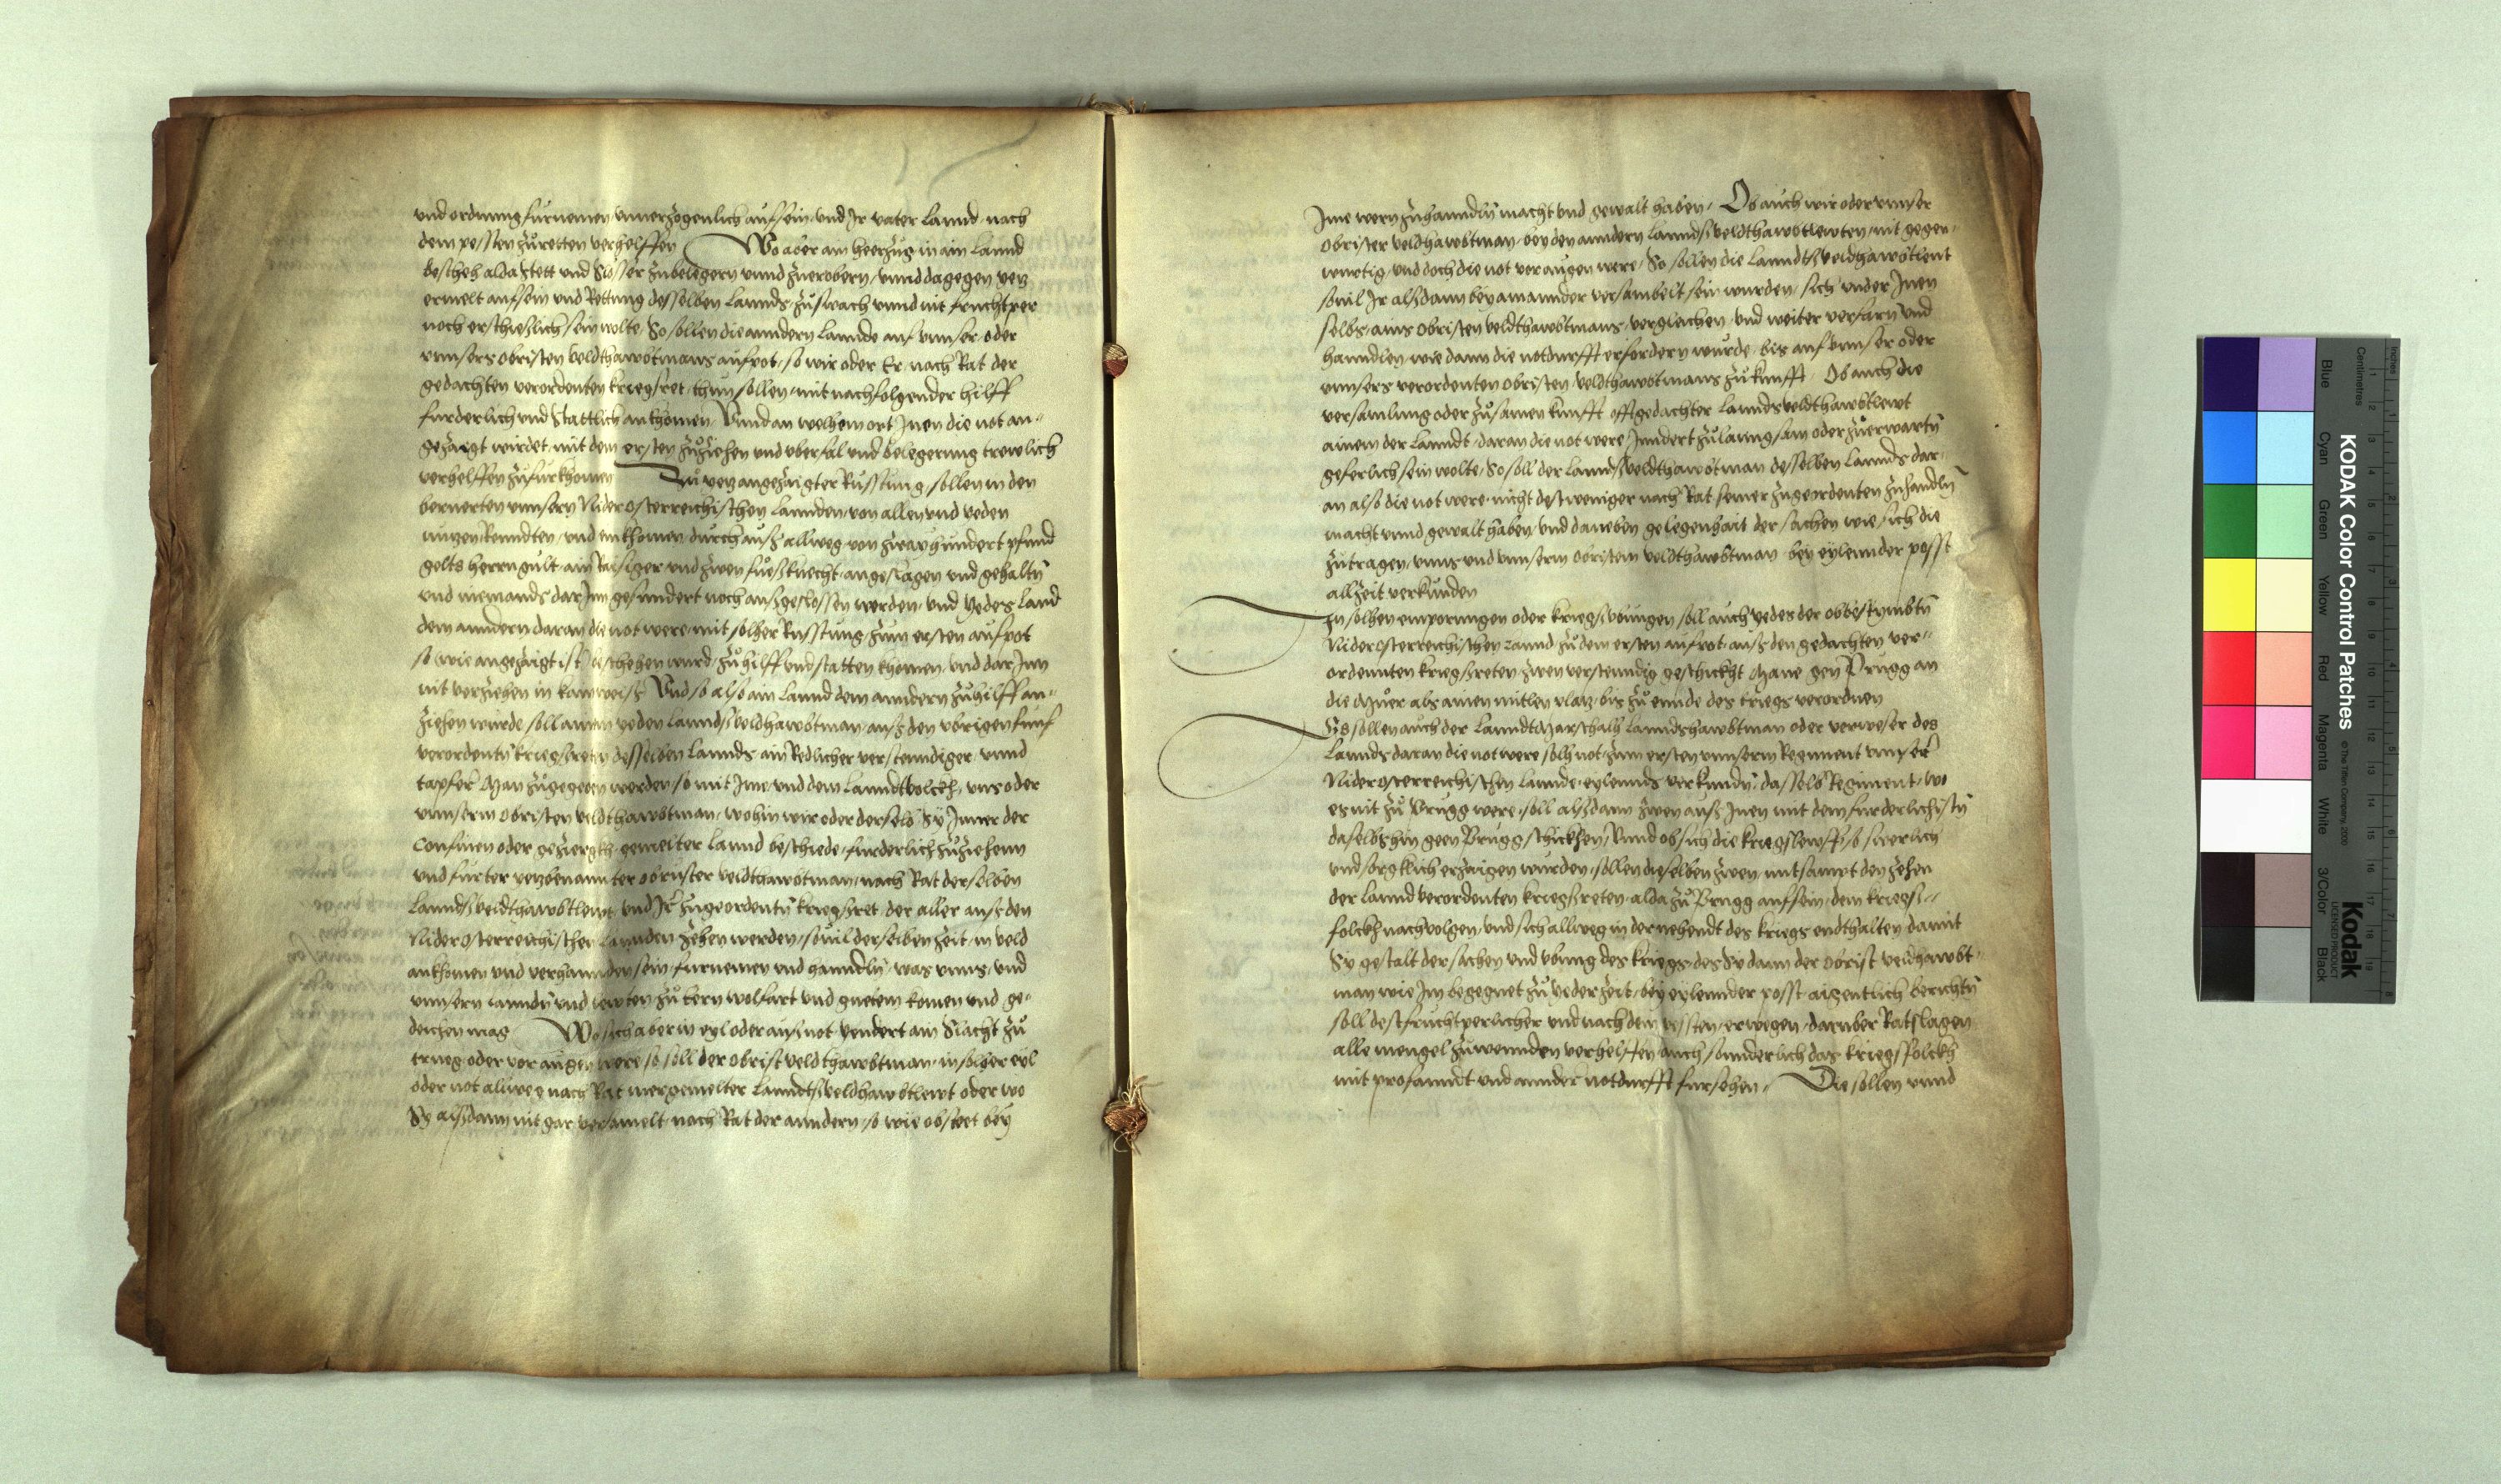 vnd ordnung furnemen, vnuerzogenlich auf sein, vnd Ir vater Lannd, nach
dem pessten zů retten verhelffen Wo aber ain heerzug in ain Lannd
bescheh alda Stett vnd Slosser zubelegern vnnd zuerobern, vnnd dagegen yetz
ermelt aufsein vnd Rettung desselben Lannds, zů swach vnnd nit fruchtper
noch erschießlich sein wolte, So sollen die anndern Lannde auf vnnser, oder
vnnsers obristen Veldthawbtmans aufpot, so wir oder Er, nach Rat der
gedachten verordenten kriegsret, thun sollen, mit nachfolgender hilff
furderlich vnd Stattlich ankhomen, Vnnd an welhem ort Inen die not an=
gezaigt wirdet, mit dem ersten zůziehen vnd vberfal vnd belegerung trewlich
verhelffen zufurkhomen Zů yetz angezaigter Russtung, sollen in den
beruerten vnnsern Nider Osterreichischen Lannden, von allen vnd yeden
nutzen, Renndten, vnd einkhomen durchauß allweg von zwayhundert pfund
gelts herrn gult, ain Raisiger vnd zwen fueßknecht, angeslagen vnd gehaltn
vnd niemands darInn gesundert noch außgeslossen werden, vnd Yedes Land
dem anndern daran die not were, mit solher Russtung, zum ersten aufpot
so wie angezaigt ist, beschehen wurd, zů hilff vnd statten khomen, vnd darInn
nit verziehen in kain weiß Vnd so also ain Lannd dem anndern zů hilff an=
ziehen wurde soll ainem yeden Lanndßveldhawbtman, auß den vbrigen funf
verordentn kriegßretn desselben Lannds ain Redlicher verstenndiger, vnnd
tapfer Man zugegeben werden, so mit Ime, vnd dem Lanndtvolckh, vns oder
vnnserm obristen veldthawbtman, wohin wir oder derselb Sy Inner der
Confinen oder gezierckh, gemelter Lannd beschiede, furderlich zůziehenn
vnd furter yetzbenannter obrister veldthawbtman, nach Rat derselben
Lanndßveldthawbtlewt, vnd Ir zugeordentn kriegßret, der aller auß den
Nider Osterreichischen Lannden zehen werden, souil derselben zeit, in veld
ankhomen vnd verhannden sein, furnemen vnd hanndln, was vnns, vnd
vnnsern Lanndn vnd lewten zů eern wolfart vnd guetem komen vnd ge=
deichen mag Wo sich aber in eyl oder auß not yendert ain Slacht zů
trueg oder vor augen were so soll der obrist veldthawbtman, in solher eyl
oder not alweg nach Rat mergemelter Lanndtßveldhawbtlewt oder wo
Sy alßdann nit gar versamelt, nach Rat der anndern, so wie obsteet bey
Ime wern zuhanndln macht vnd gewalt haben, Ob auch wir oder vnnser
obrister veldhawbtman, bey den anndern Lanndßveldthawbtlewten, nit gegen=
wurtig, vnd doch die not vor augen were, So sollen die Lanndtßveldthawbtleut
souil Ir alßdann bey ainannder versambelt sein wurden, sich vnder Inen
selbs, ains obristen veldthawbtmans, vergleichen, vnd weiter verfarn vnd
hanndlen, wie dann die notdurfft erfordern wurde, bis auf vnnser oder
vnnsers verordenten obristen, veldthawbtmans zůkunfft, Ob auch die
versamlung oder zůsamenkunfft offtgedachter Lanndsveldthawbtlewt
ainem der Lanndt, daran die not were, Inndert zulanngsam oder zuerwartn
geferlich sein wolte, So soll der Lanndßveldthawbtman desselben Lannds dar=
an also die not were, nicht destweniger nach Rat seiner zugeordenten zuhandln
macht vnnd gewalt haben, vnd daneben gelegenhait der sachen wie sich die
zutragen, vnns vnd vnnserm obristem veldthawbtman, bey eylennder posst
allzeit verkunden
In solhen emporungen oder kriegßvbungen soll auch yedes der obbestymbtn
Nider Osterreichischen Lannd, zů dem ersten aufpot, auß den gedachten ver=
ordennten kriegßreten, zwen verstenndig geschickht Mane gen Prugg an
die Muer als ainen mitlen platz, bis zů ennde des kriegs verordnen
Es sollen auch der LanndtMarschalh Lanndshawbtman oder verweser des
Lannds daran die not were solh not, zum ersten vnnserm Regiment vnnser
Nider Osterreichischen Lannde, eylennds verkundn, dasselb Regiment, wo
es nit zů Brugg were, soll alßdann zwen auß Inen mit dem furderlichistn
daselbshin geen Brugg schickhen, Vnnd ob sich die kriegßlewff so swerlich
vnd sorgklich erzaigen wurden, sollen dieselben zwen, mitsampt den zehen
der Lannd verordenten kriegßreten, alda zů Brugg aufsein, dem kriegß=
folckh nachuolgen, vnd sich allweg in der nehendt des kriegs endthalten damit
Sy gestalt der sachen vnd vbung des kriegs, des Sy dann der obrist veldhawbt=
man wie Im begegnet zů yeder zeit, bey eylennder posst aigentlich berichtn
soll dest fruchtperlicher vnd nach dem pessten, erwegen, daruber Ratslagen
alle mengel zuwennden verhelffen, auch sonnderlich das kriegßfolckh
mit profanndt vnd annder notdurfft fursehen, Die sollen vnnd